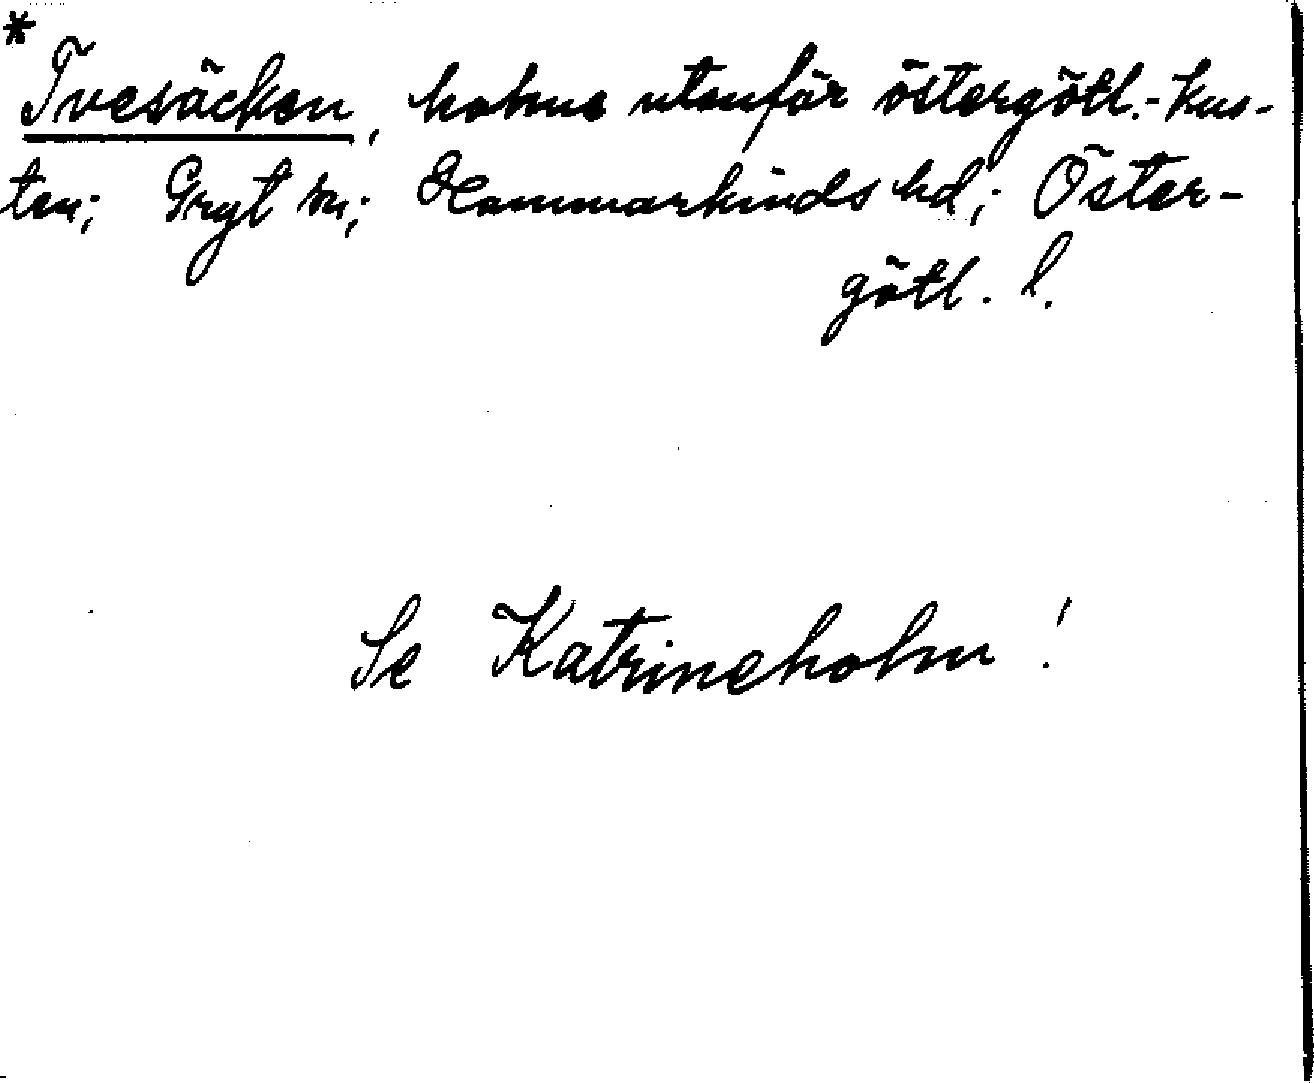 * Tvesäcken, holme utanför östergötl.-kus-
ten; Gryt sn; Hammarkinds hd; Öster-
götl. l.
Se Katrineholm!